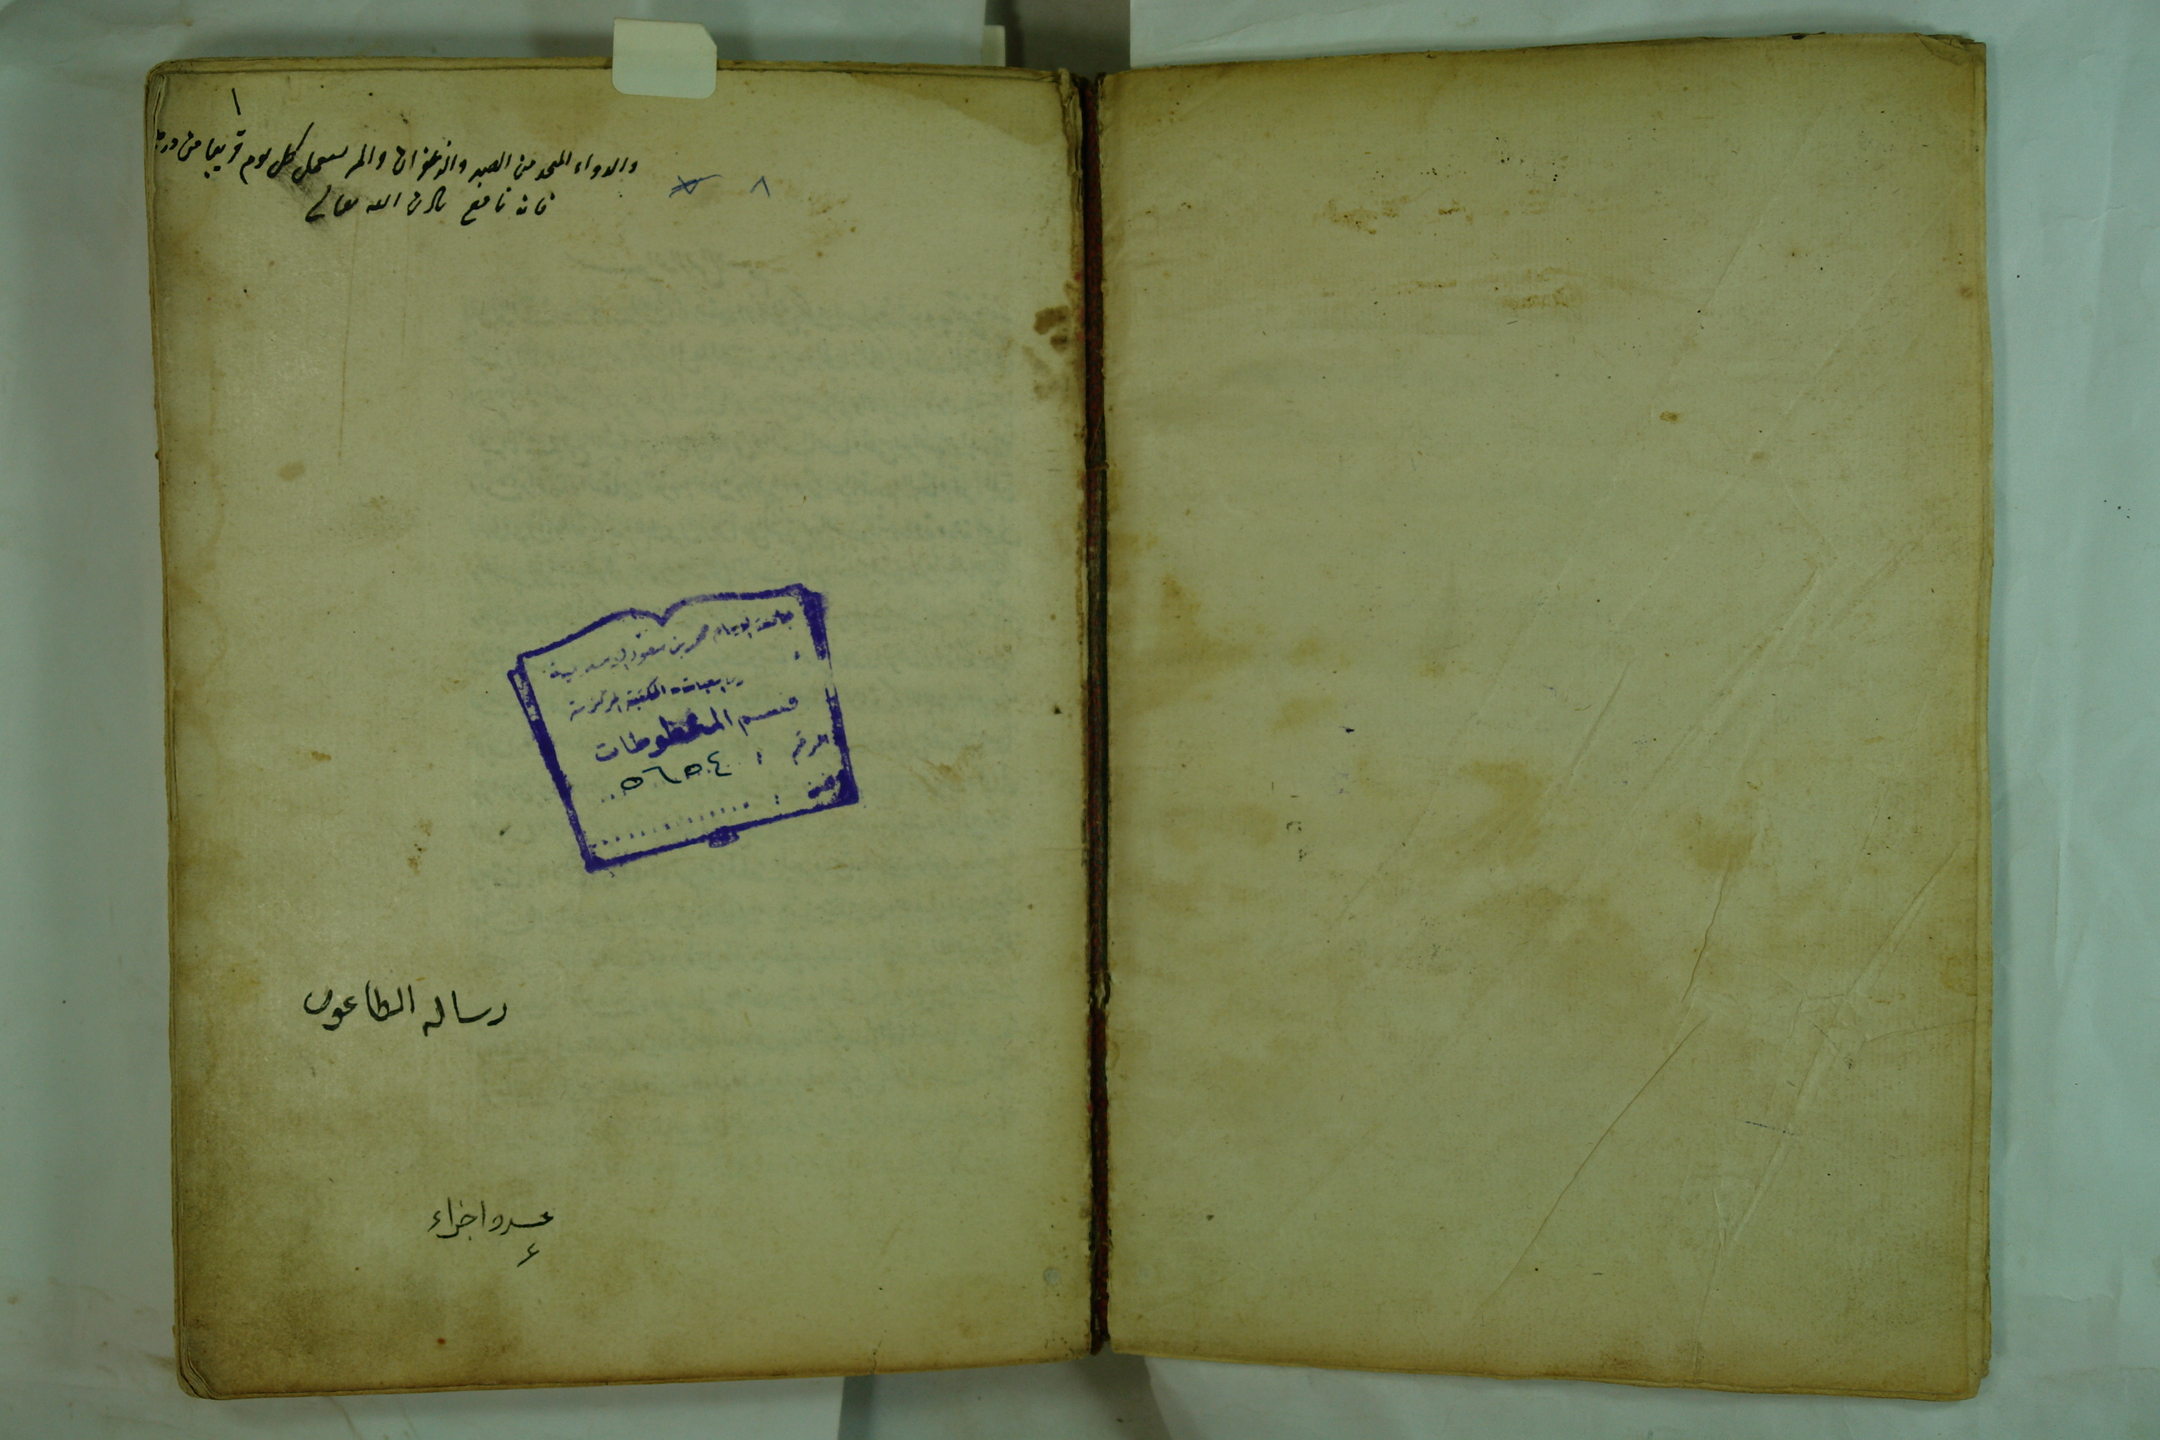 ١
والدواء المتخذ من الصبر والزعفران والمر يستعمل كل يوم قريبا من
فانه نافع باذن الله تعالى
٨
جامعة الإمام محمد بن سعود الإسلامية
المكتبة المركزية
قسم المخطوطات
الرقم : ٥٦٥٤
رساله الطاعون
اجزاء
٤